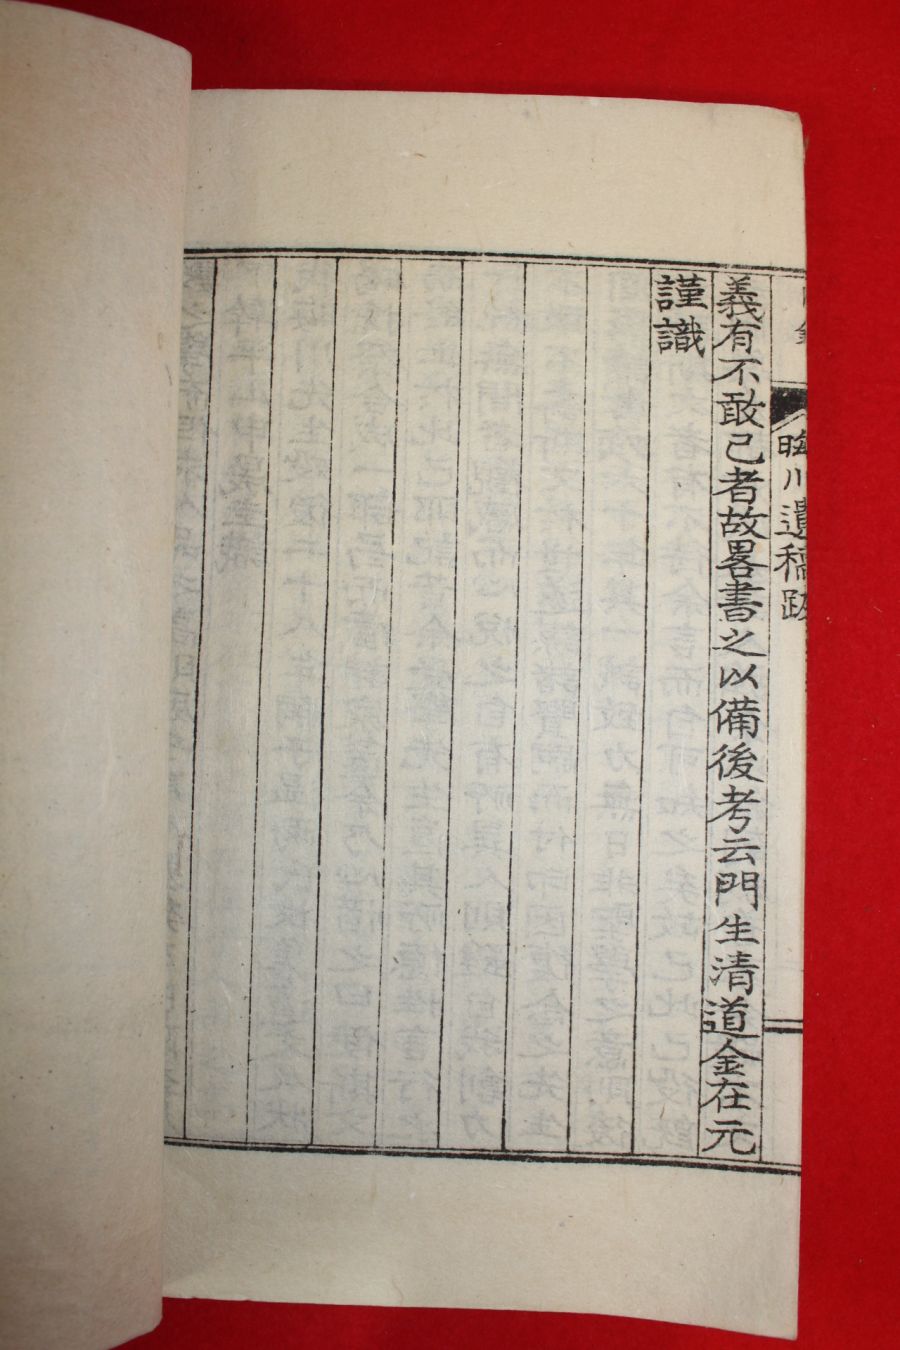 晦川遺稿跋
義有不敢已者故畧書之以備後考云門生清道金在元
謹識